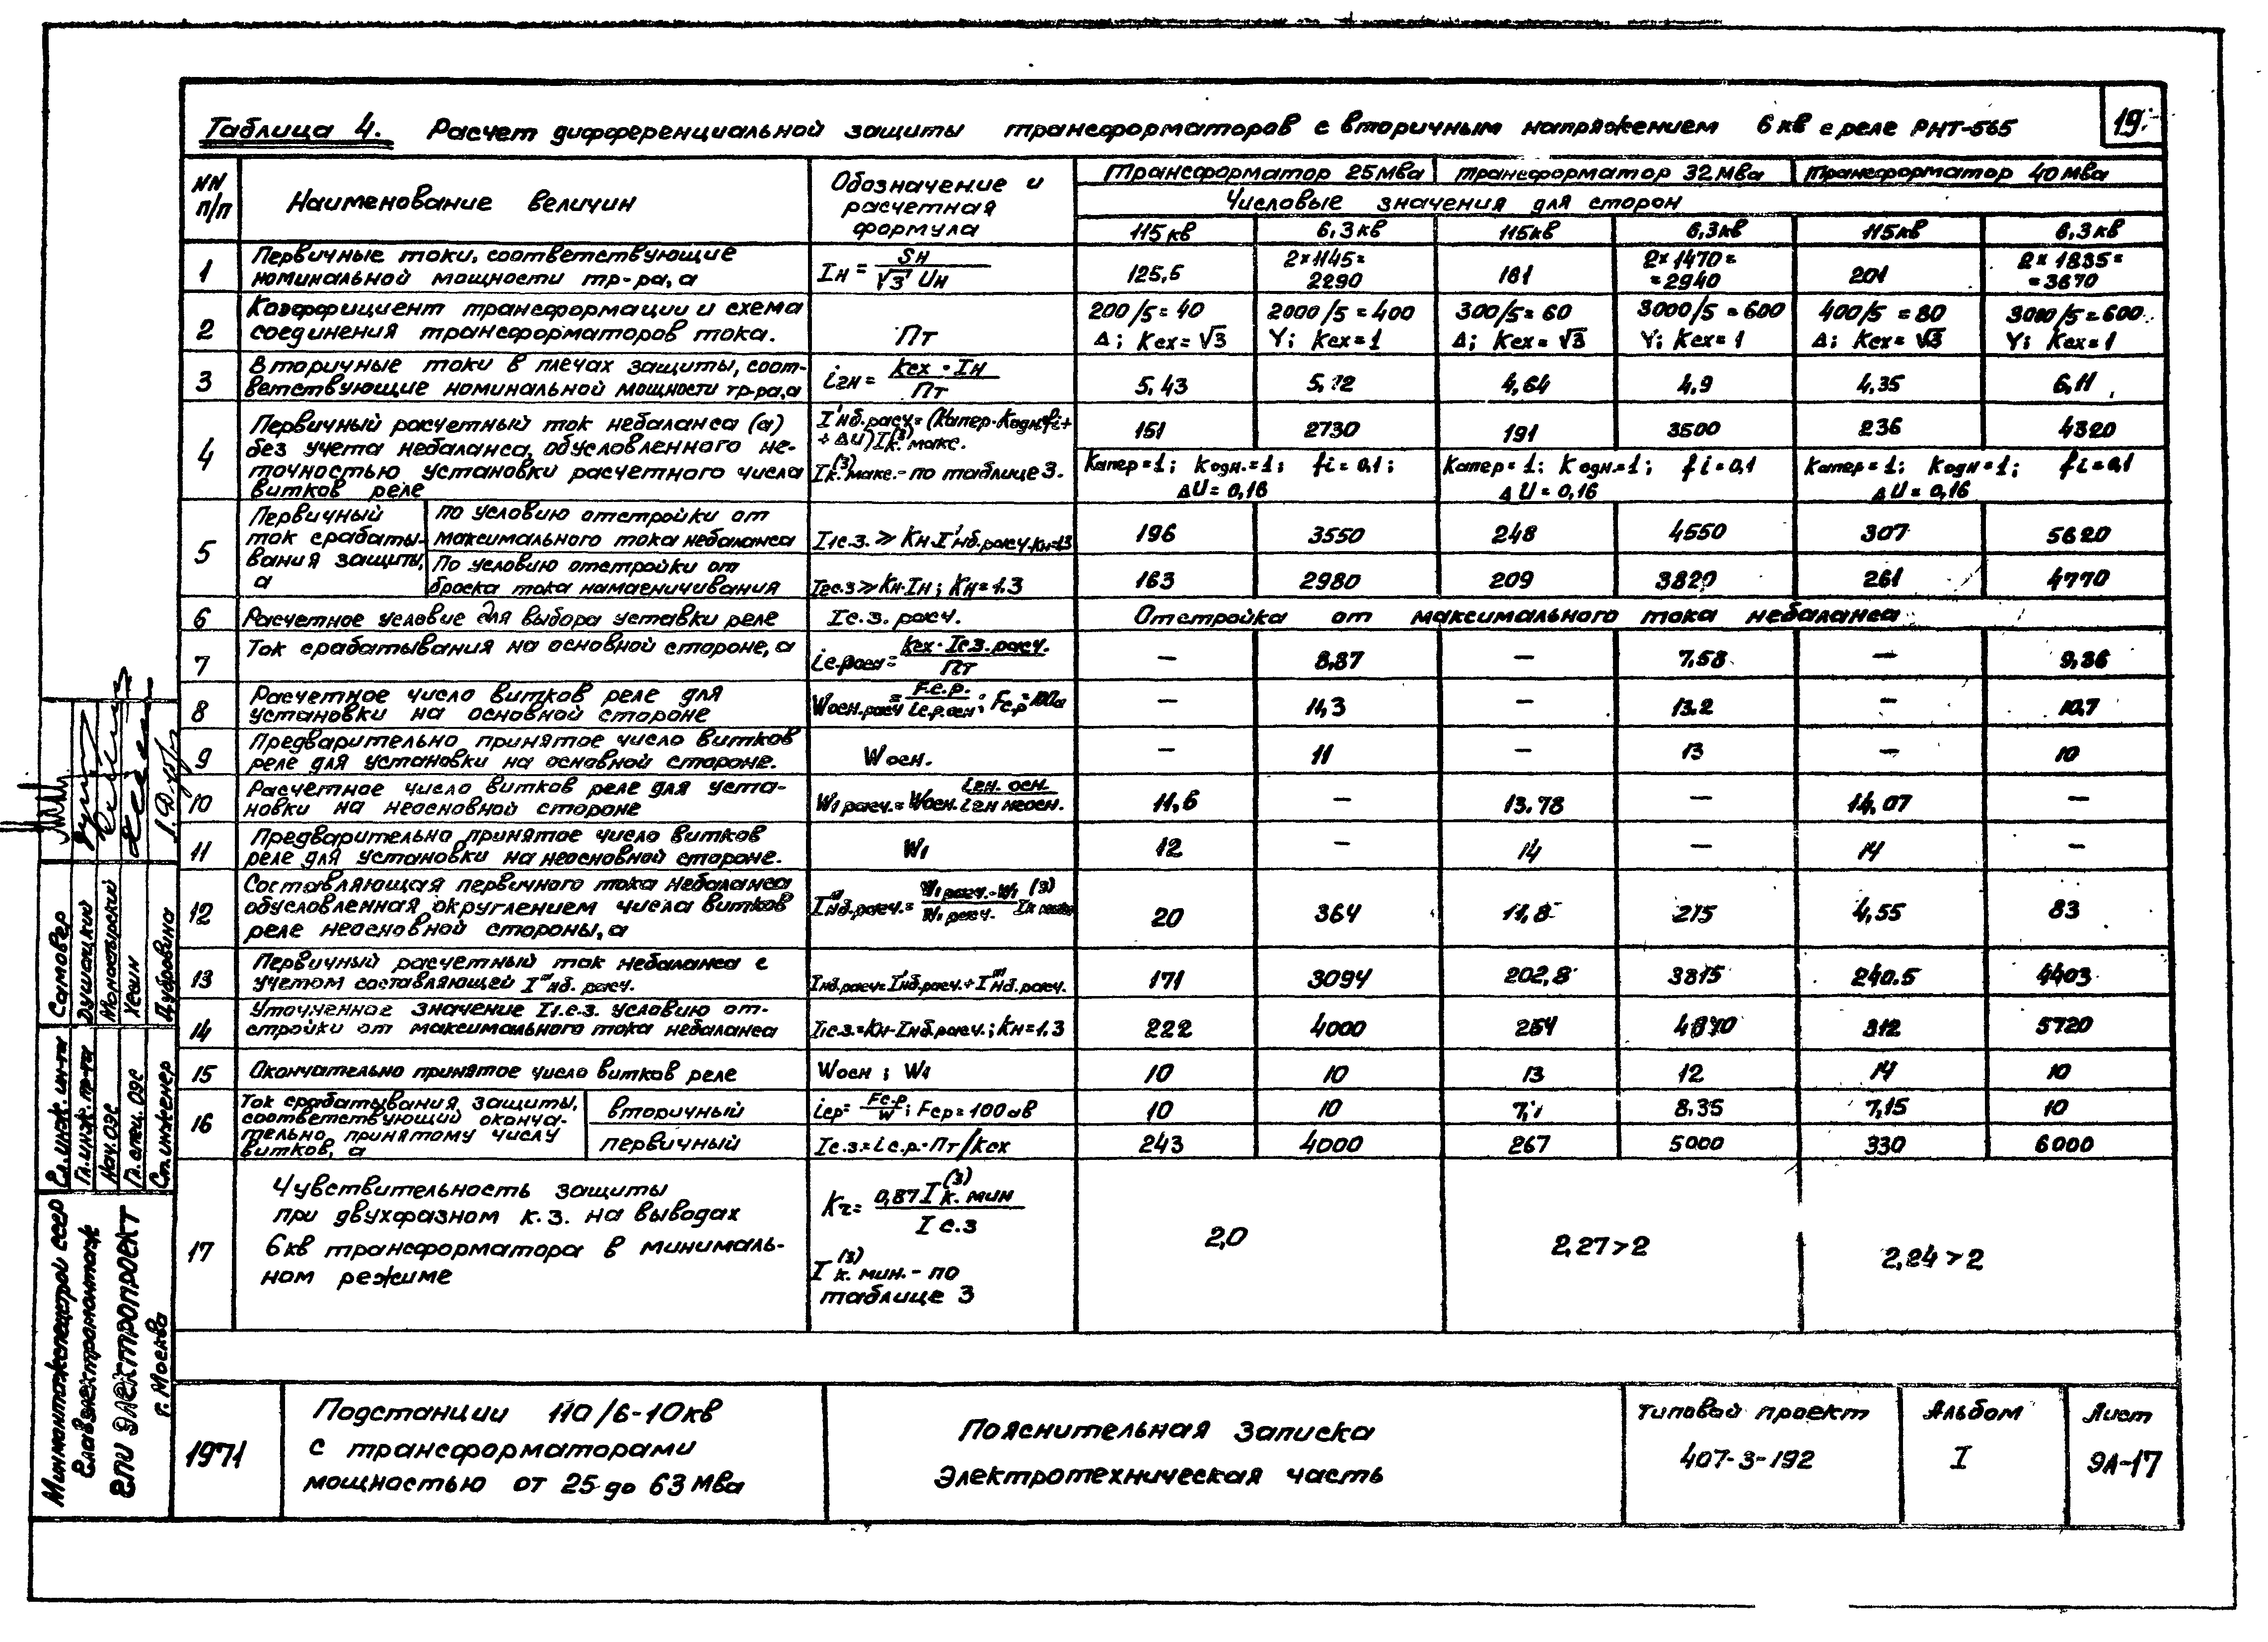 19.
Таблица 4. Расчет дифференциальной защиты трансформаторов с вторичным напряжением 6 кв с реле РНТ-565
NN п/п
Наименование величин
Обозначение и расчетная формула
Трансформатор 25 Мва
трансформатор 32 Мва
трансформатор 40 Мва
Числовые значения для сторон
115 кв 6,3 кв 115 кв 6,3 кв 115 кв 6,3 кв
1 Первичные токи, соответствующие номинальной мощности тр-ра, а
Iн = Sн / √3 Uн
125,5 2×1145= 2290 161 2×1470= =2940 201 2×1835= =3670
2 Коэффициент трансформации и схема соединения трансформаторов тока.
Пт
200/5=40 2000/5=400 300/5=60 3000/5=600 400/5=80 3000/5=600
Δ; Ксх=√3 Y; Ксх=1 Δ; Ксх=√3 Y; Ксх=1 Δ; Ксх=√3 Y; Ксх=1
3 Вторичные токи в плечах защиты, соответствующие номинальной мощности тр-ра, а
i2н = Ксх · Iн / Пт
5,43 5,72 4,64 4,9 4,35 6,11
4 Первичный расчетный ток небаланса (а) без учета небаланса, обусловленного неточностью установки расчетного числа витков реле
I'нб.расч=(Капер·Кодн·fi+ +ΔU)I(3)к.макс.
I(3)к.макс.- по таблице 3.
151 2730 191 3500 236 4320
Капер=1; Кодн.=1; fi=0,1; ΔU=0,16
Капер=1; Кодн.=1; fi=0,1 ΔU=0,16
Капер=1; Кодн=1; fi=0,1 ΔU=0,16
5 Первичный ток срабатывания защиты, а
по условию отстройки от максимального тока небаланса
I1с.з. ≥ Кн·I'нб.расч. Кн=1,3
196 3550 248 4550 307 5620
По условию отстройки от броска тока намагничивания
I2с.з ≥ Кн·Iн; Кн=1.3
163 2980 209 3820 261 4770
6 Расчетное условие для выбора уставки реле
Iс.з. расч.
Отстройка от максимального тока небаланса
7 Ток срабатывания на основной стороне, а
iс.росн= Ксх·Iс.з.расч. / Пт
— 8,87 — 7,58 — 9,36
8 Расчетное число витков реле для установки на основной стороне
Wосн.расч= Fс.р. / iс.р.осн; Fс.р=100а
— 11,3 — 13.2 — 10,7
9 Предварительно принятое число витков реле для установки на основной стороне.
Wосн.
— 11 — 13 — 10
10 Расчетное число витков реле для установки на неосновной стороне
W1расч.= Wосн. i2н. осн. / i2н неосн.
11,6 — 13.78 — 14,07 —
11 Предварительно принятое число витков реле для установки на неосновной стороне.
W1
12 — 14 — 14 —
12 Составляющая первичного тока небаланса обусловленная округлением числа витков реле неосновной стороны, а
I'''нб.расч.= W1расч.-W1 / W1расч. I(3)к
20 364 11,8 275 4,55 83
13 Первичный расчетный ток небаланса с учетом составляющей I'''нб. расч.
Iнб.расч=I'нб.расч.+I'''нб.расч.
171 3094 202,8 3815 240.5 4403
14 Уточненное значение I1.с.з. условию отстройки от максимального тока небаланса
I1с.з.=Кн·Iнб.расч.; Кн=1.3
222 4000 264 312 5720
15 Окончательно принятое число витков реле
Wосн ; W1
10 10 13 12 14 10
16 Ток срабатывания защиты, соответствующий окончательно принятому числу витков, а
вторичный
iср= Fс.р / W; Fср=100ав
10 10 7,7 8,35 7,15 10
первичный
Iс.з=iс.р.·Пт/Ксх
243 4000 267 5000 330 6000
17 Чувствительность защиты
при двухфазном к.з. на выводах
6кв трансформатора в минимальном режиме
Кч= 0,87 I(3)к. мин / Iс.з
I(3)к. мин.- по таблице 3
2,0 2,27 > 2 2,24 > 2
1971
Подстанции 110/6-10кв
с трансформаторами
мощностью от 25 до 63 Мва
Пояснительная записка
Электротехническая часть
Типовой проект
407-3-192
Альбом
I
Лист
ЭА-17
Минмонтажспецстрой СССР
Главэлектромонтаж
ГПИ Электропроект
г. Москва
Гл. инж. ин-та Самовер
Гл. инж. пр-та Душацкий
Нач. ОЭС Монастырский
Гл. спец. ОЭС Хесин
Ст. инженер Дубровина